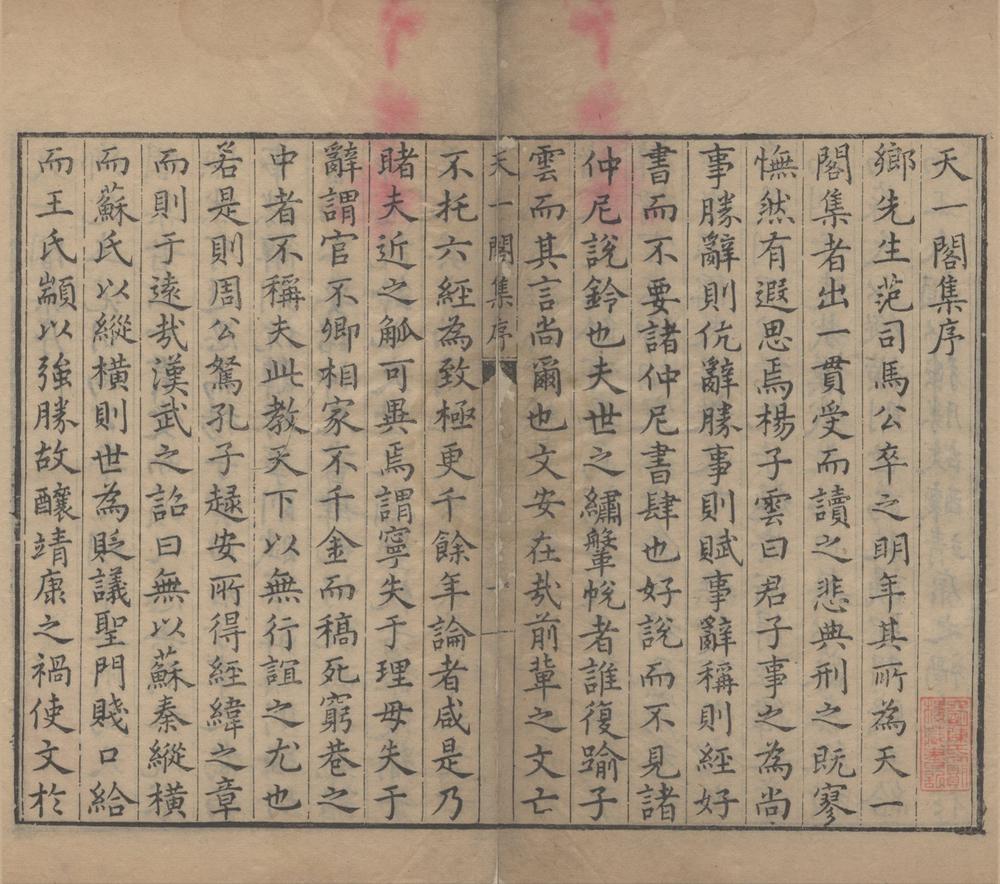 天一閣集序
鄉先生范司馬公卒之明年其所為天一
閣集者出一貫受而讀之悲典刑之既寥
憮然有遐思焉楊子雲曰君子事之為尚
事勝辭則伉辭勝事則賦事辭稱則經好
書而不要諸仲尼書肆也好說而不見諸
仲尼說鈴也夫世之繡鞶帨者誰復踰子
雲而其言尚爾也文安在哉前輩之文亡
天一閣集序
一
不托六經為致極更千餘年論者咸是乃
睹夫近之觚可異焉謂寧失于理毋失于
辭謂官不卿相家不千金而稿死窮巷之
中者不稱夫此教天下以無行誼之尤也
若是則周公駑孔子趢安所得經緯之章
而則于遠哉漢武之詔曰無以蘇秦縱橫
而蘇氏以縱橫則世為貶議聖門賤口給
而王氏顓以強勝故釀靖康之禍使文於